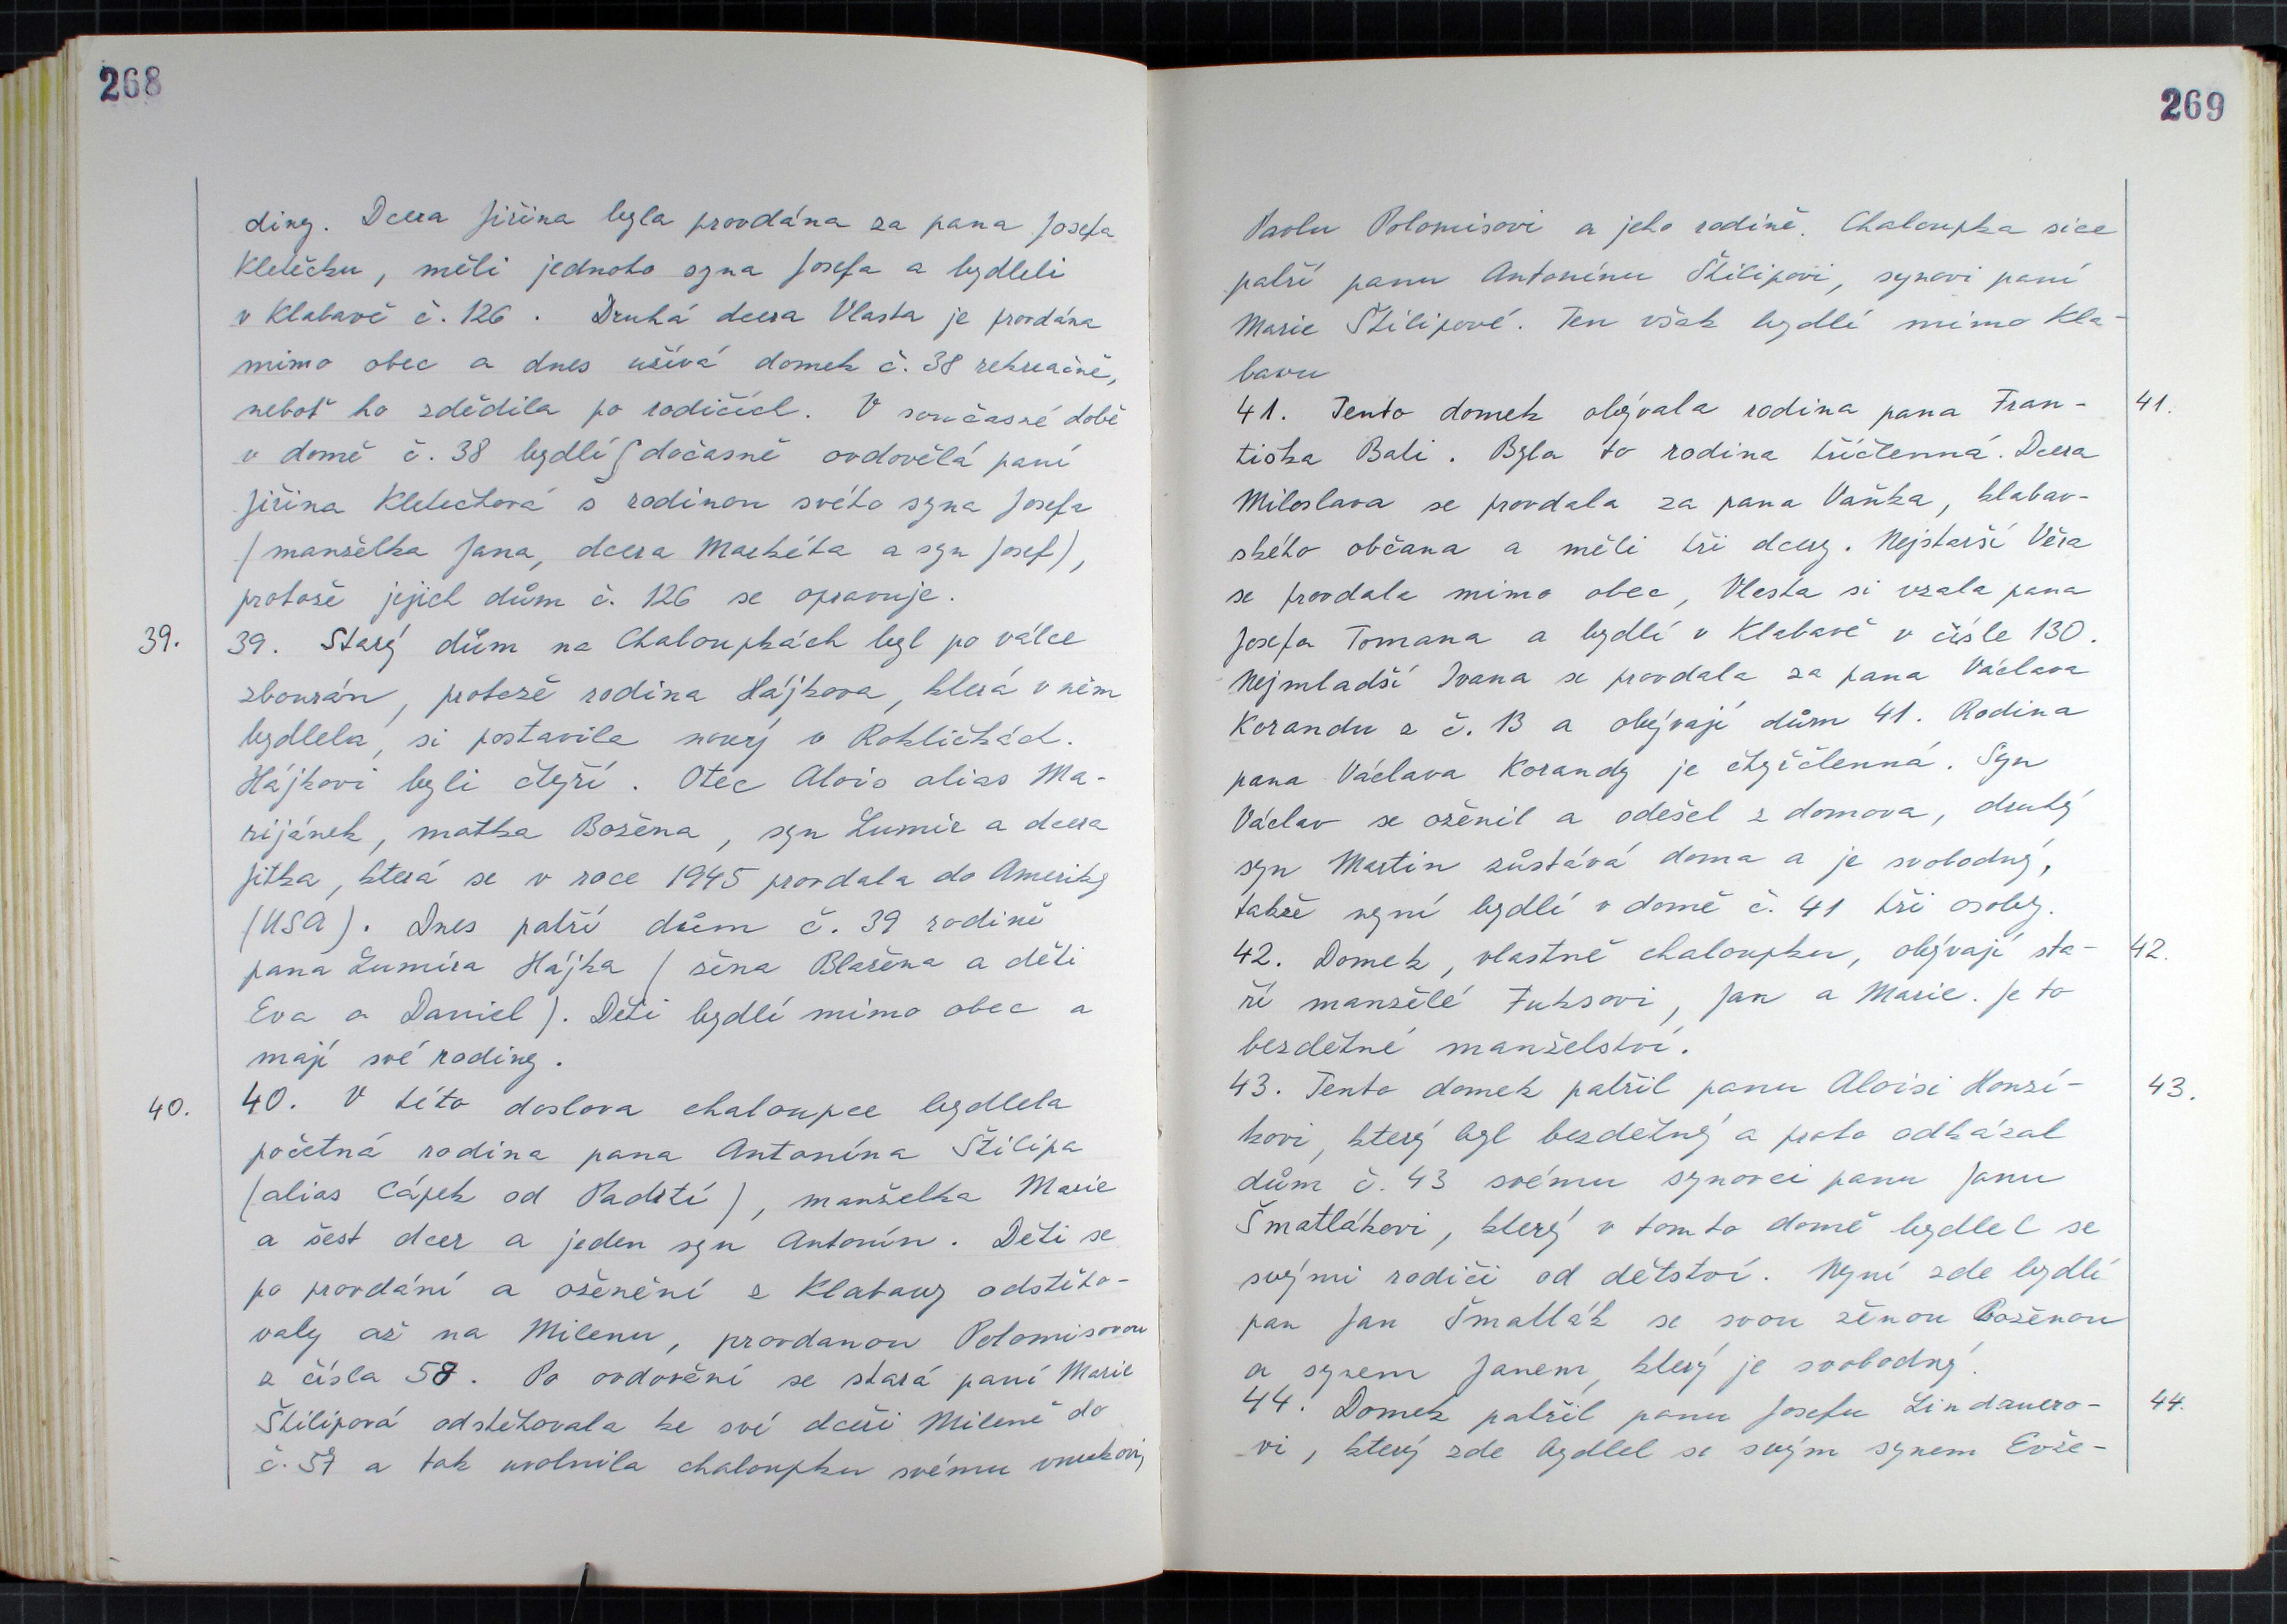 268
diny. Dcera Jiřina byla provdána za pana Josefa
Kletečku, měli jednoho syna Josefa a bydleli
v Klabavě č. 126. Druhá dcera Vlasta je provdána
mimo obec a dnes užívá domek č. 38 rekreačně,
neboť ho zdědila po rodičích. V současné době
v domě č. 38 bydlí dočasně ovdovělá paní
Jiřina Kletečková s rodinou svého syna Josefa
(manželka Jana, dcera Markéta a syn Josef),
protože jejich dům č. 126 se opravuje.
39. 39. Starý dům na Chaloupkách byl po válce
zbourán, protože rodina Hájkova, která v něm
bydlela, si postavila nový v Rokličkách.
Hájkovi byli čtyři. Otec Alois alias Ma-
rijánek, matka Božena, syn Lumír a dcera
Jitka, která se v roce 1945 provdala do Ameriky
(USA). Dnes patří dům č. 39 rodině
pana Lumíra Hájka (žena Blažena a děti
Eva a Daniel). Děti bydlí mimo obec a
mají své rodiny.
40. 40. V této doslova chaloupce bydlela
početná rodina pana Antonína Štilipa
(alias Cápek od Padrtí), manželka Marie
a šest dcer a jeden syn Antonín. Děti se
po provdání a oženění z Klabavy odstěho-
valy až na Milenu, provdanou Polomisovou
z čísla 58. Po ovdovění se stará paní Marie
Štilipová odstěhovala ke své dceři Mileně do
č. 57 a tak uvolnila chaloupku svému vnukovi
269
Pavlu Polomisovi a jeho rodině. Chaloupka sice
patří panu Antonínu Štilipovi, synovi paní
Marie Štilipové. Ten však bydlí mimo Kla-
bavu
41. Tento domek obývala rodina pana Fran- 41.
tiška Bali. Byla to rodina tříčlenná. Dcera
Miloslava se provdala za pana Vaňka, klabav-
ského občana a měli tři dcery. Nejstarší Věra
se provdala mimo obec, Vlasta si vzala pana
Josefa Tomana a bydlí v Klabavě v čísle 130.
Nejmladší Ivana se provdala za pana Václava
Korandu z č. 13 a obývají dům 41. Rodina
pana Václava Korandy je čtyřčlenná. Syn
Václav se oženil a odešel z domova, druhý
syn Martin zůstává doma a je svobodný,
takže nyní bydlí v domě č. 41 tři osoby.
42. Domek, vlastně chaloupku, obývají sta- 42.
ří manželé Fuksovi, Jan a Marie. Je to
bezdětné manželství.
43. Tento domek patřil panu Aloisi Honzí- 43.
kovi, který byl bezdětný a proto odkázal
dům č. 43 svému synovci panu Janu
Šmatlákovi, který v tomto domě bydlel se
svými rodiči od dětství. Nyní zde bydlí
pan Jan Šmatlák se svou ženou Boženou
a synem Janem, který je svobodný.
44. Domek patřil panu Josefu Lindauero- 44.
vi, který zde bydlel se svým synem Evže-